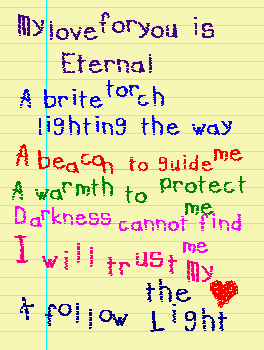 My love for you is
Eternal
A brite torch
lighting the way
A beacon to guide me
A warmth to protect
me
Darkness cannot find
me
I will trust My
the
& follow Light